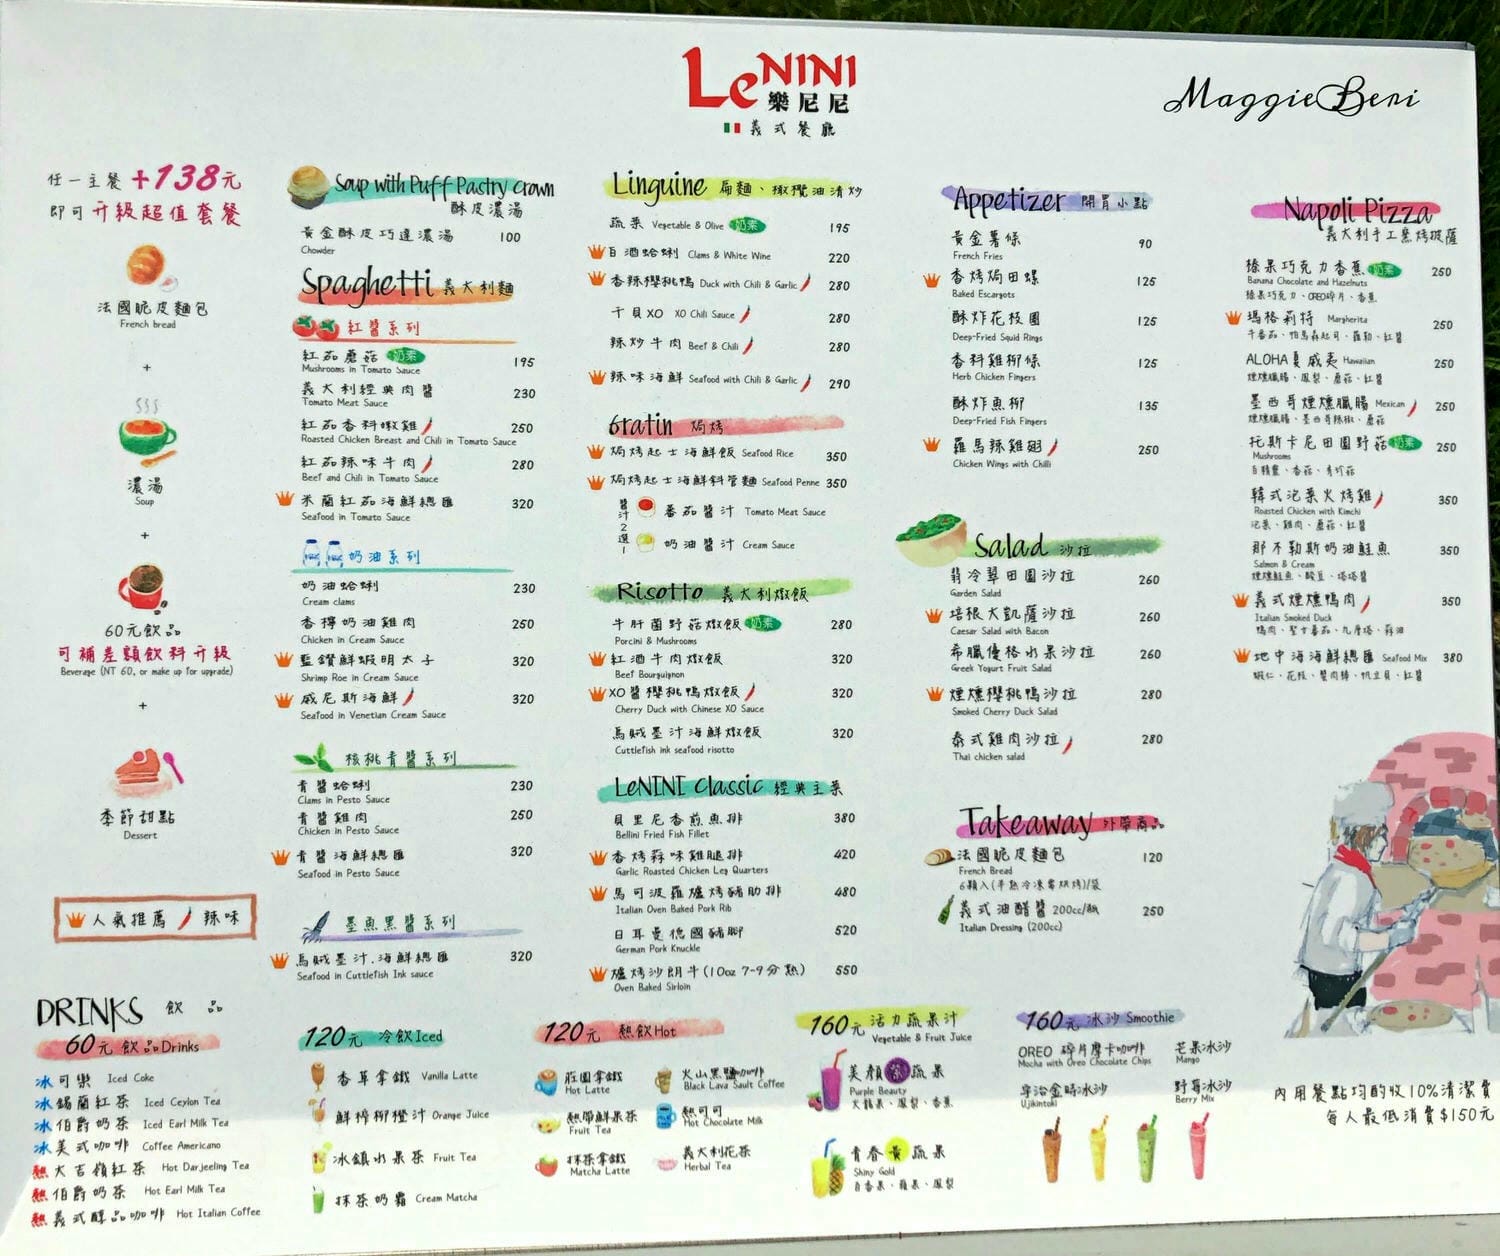 LeNINI
樂尼尼
義式餐廳
MaggieBeri
任一主餐+138元
即可升級超值套餐
法國脆皮麵包
French bread
+
濃湯
Soup
+
60元飲品
可補差額飲料升級
Beverage (NT 60, or make up for upgrade)
+
季節甜點
Dessert
人氣推薦 辣味
Soup with Puff Pastry Crown
酥皮濃湯
黃金酥皮巧達濃湯 100
Chowder
Spaghetti 義大利麵
紅醬系列
紅茄蘑菇 奶素 195
Mushrooms in Tomato Sauce
義大利經典肉醬 230
Tomato Meat Sauce
紅茄香料嫩雞 250
Roasted Chicken Breast and Chili in Tomato Sauce
紅茄辣味牛肉 280
Beef and Chili in Tomato Sauce
米蘭紅茄海鮮總匯 320
Seafood in Tomato Sauce
奶油系列
奶油蛤蜊 230
Cream clams
香檸奶油雞肉 250
Chicken in Cream Sauce
藍鑽鮮蝦明太子 320
Shrimp Roe in Cream Sauce
威尼斯海鮮 320
Seafood in Venetian Cream Sauce
核桃青醬系列
青醬蛤蜊 230
Clams in Pesto Sauce
青醬雞肉 250
Chicken in Pesto Sauce
青醬海鮮總匯 320
Seafood in Pesto Sauce
墨魚黑醬系列
烏賊墨汁.海鮮總匯 320
Seafood in Cuttlefish Ink sauce
Linguine 扁麵、橄欖油清炒
蔬菜 Vegetable & Olive 奶素 195
白酒蛤蜊 Clams & White Wine 220
香辣櫻桃鴨 Duck with Chili & Garlic 280
干貝XO XO Chili Sauce 280
辣炒牛肉 Beef & Chili 280
辣味海鮮 Seafood with Chili & Garlic 290
Gratin 焗烤
焗烤起士海鮮飯 Seafood Rice 350
焗烤起士海鮮斜管麵 Seafood Penne 350
醬汁2選1
番茄醬汁 Tomato Meat Sauce
奶油醬汁 Cream Sauce
Risotto 義大利燉飯
牛肝菌野菇燉飯 奶素 280
Porcini & Mushrooms
紅酒牛肉燉飯 320
Beef Bourguignon
XO醬櫻桃鴨燉飯 320
Cherry Duck with Chinese XO Sauce
烏賊墨汁海鮮燉飯 320
Cuttlefish ink seafood risotto
LeNINI Classic 經典主菜
貝里尼香煎魚排 380
Bellini Fried Fish Fillet
香烤蒜味雞腿排 420
Garlic Roasted Chicken Leg Quarters
馬可波羅爐烤豬肋排 480
Italian Oven Baked Pork Rib
日耳曼德國豬腳 520
German Pork Knuckle
爐烤沙朗牛(10oz 7-9分熟) 550
Oven Baked Sirloin
Appetizer 開胃小點
黃金薯條 90
French Fries
香烤焗田螺 125
Baked Escargots
酥炸花枝圈 125
Deep-Fried Squid Rings
香料雞柳條 125
Herb Chicken Fingers
酥炸魚柳 135
Deep-Fried Fish Fingers
羅馬辣雞翅 250
Chicken Wings with Chilli
Salad 沙拉
翡冷翠田園沙拉 260
Garden Salad
培根大凱薩沙拉 260
Caesar Salad with Bacon
希臘優格水果沙拉 260
Greek Yogurt Fruit Salad
煙燻櫻桃鴨沙拉 280
Smoked Cherry Duck Salad
泰式雞肉沙拉 280
Thai chicken salad
Takeaway 外帶商品
法國脆皮麵包 120
French Bread
6顆入(半熟冷凍需烘烤)/袋
義式油醋醬 200cc/瓶 250
Italian Dressing (200cc)
Napoli Pizza
義大利手工窯烤披薩
榛果巧克力香蕉 奶素 250
Banana Chocolate and Hazelnuts
榛果巧克力、OREO碎片、香蕉
瑪格莉特 Margherita 250
牛番茄、帕馬森起司、羅勒、紅醬
ALOHA夏威夷 Hawaiian 250
煙燻臘腸、鳳梨、蘑菇、紅醬
墨西哥煙燻臘腸 Mexican 250
煙燻臘腸、墨西哥辣椒、蘑菇
托斯卡尼田園野菇 奶素 250
Mushrooms
白精靈、香菇、秀珍菇
韓式泡菜火烤雞 350
Roasted Chicken with Kimchi
泡菜、雞肉、蘑菇、紅醬
那不勒斯奶油鮭魚 350
Salmon & Cream
煙燻鮭魚、酸豆、塔塔醬
義式煙燻鴨肉 350
Italian Smoked Duck
鴨肉、聖女番茄、九層塔、蒜油
地中海海鮮總匯 Seafood Mix 380
蝦仁、花枝、蟹肉棒、帆立貝、紅醬
DRINKS 飲品
60元 飲品Drinks
冰可樂 Iced Coke
冰錫蘭紅茶 Iced Ceylon Tea
冰伯爵奶茶 Iced Earl Milk Tea
冰美式咖啡 Coffee Americano
熱大吉嶺紅茶 Hot Darjeeling Tea
熱伯爵奶茶 Hot Earl Milk Tea
熱義式醇品咖啡 Hot Italian Coffee
120元 冷飲Iced
香草拿鐵 Vanilla Latte
鮮榨柳橙汁 Orange Juice
冰鎮水果茶 Fruit Tea
抹茶奶霜 Cream Matcha
120元 熱飲Hot
莊園拿鐵
Hot Latte
熱帶鮮果茶
Fruit Tea
抹茶拿鐵
Matcha Latte
火山黑鹽咖啡
Black Lava Sault Coffee
熱可可
Hot Chocolate Milk
義大利花茶
Herbal Tea
160元 活力蔬果汁
Vegetable & Fruit Juice
美顏紫蔬果
Purple Beauty
火龍果、鳳梨、香蕉
青春黃蔬果
Shiny Gold
百香果、蘋果、鳳梨
160元 冰沙 Smoothie
OREO 碎片摩卡咖啡
Mocha with Oreo Chocolate Chips
宇治金時冰沙
Ujikintoki
芒果冰沙
Mango
野莓冰沙
Berry Mix
內用餐點均酌收10%清潔費
每人最低消費$150元